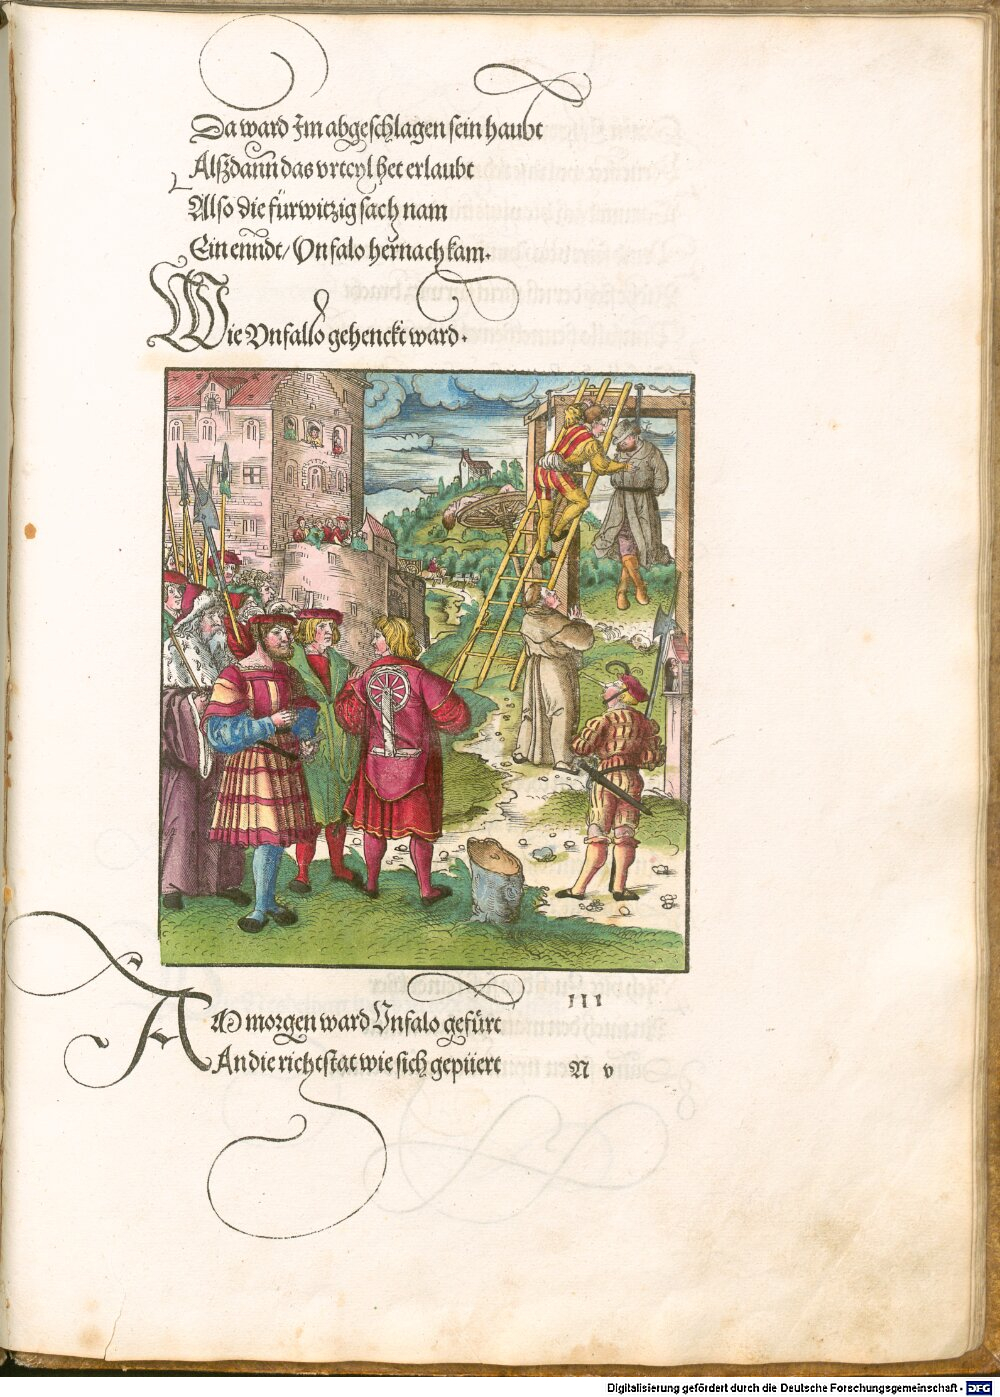 Da ward Im abgeschlagen sein haubt
Alßdann das vrteyl het erlaubt
Also die fürwitzig sach nam
Ein ennde/ Vnfalo hernach kam.
Wie Vnfallo gehenckt ward.
AM morgen ward Vnfalo gefürt
An die richtstat wie sich gepüert
III
N v
Digitalisierung gefördert durch die Deutsche Forschungsgemeinschaft - DFG